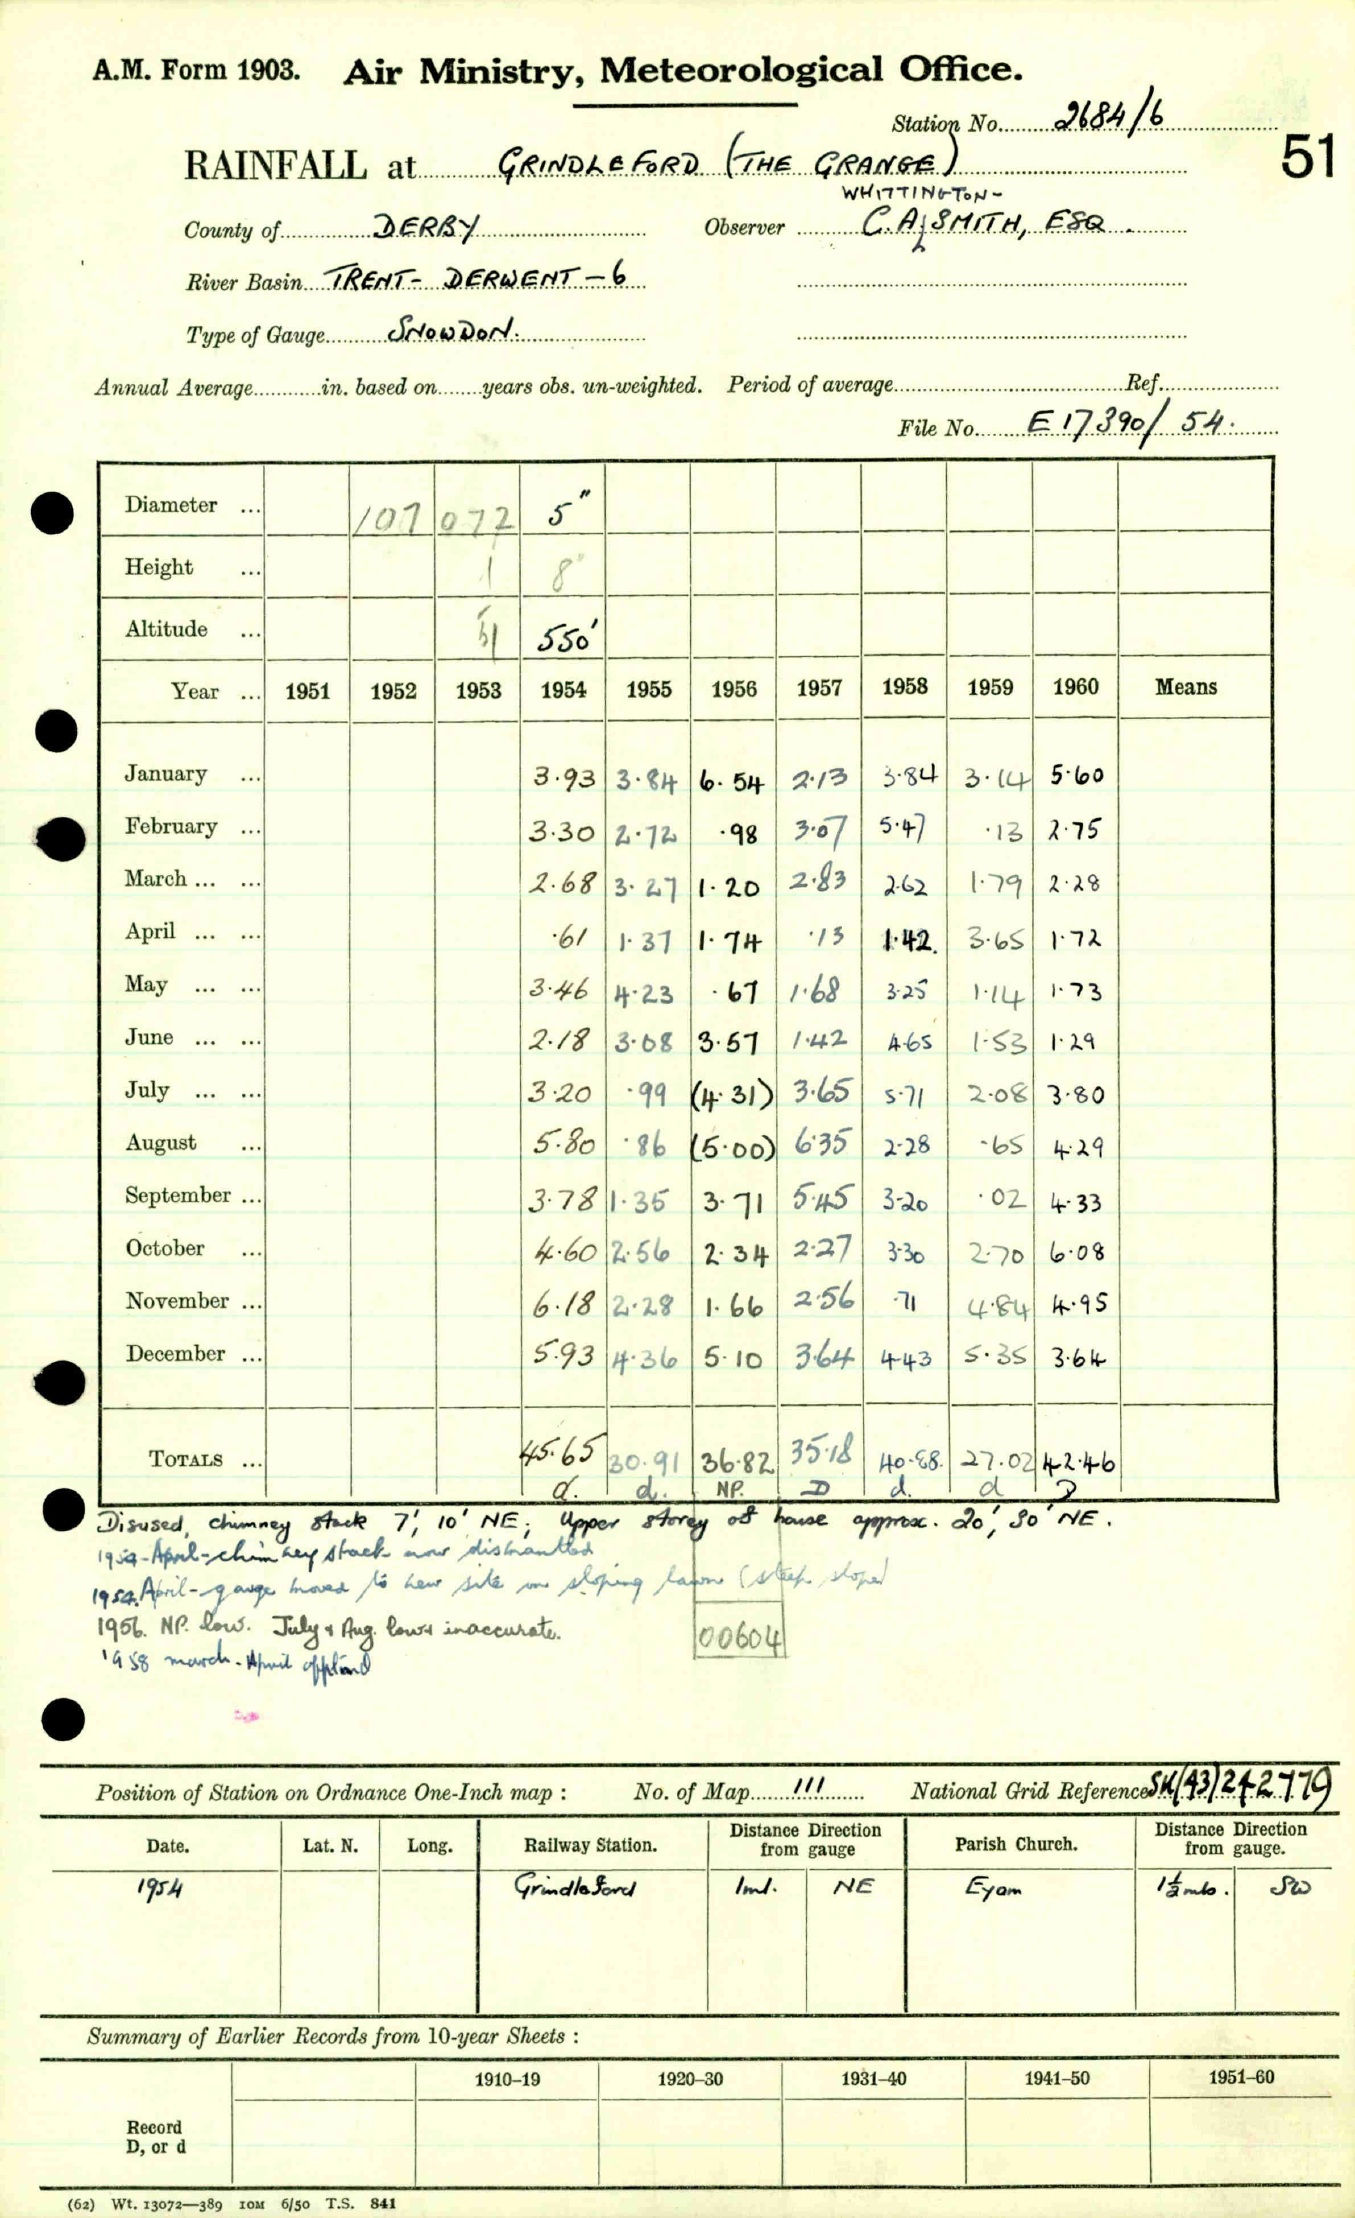 A.M. Form 1903. Air Ministry, Meteorological Office.
Station No. 2684/6
51
RAINFALL at GRINDLEFORD (THE GRANGE)
WHITTINGTON-
County of DERBY Observer C.A. SMITH, ESQ.
River Basin TRENT- DERWENT-6
Type of Gauge SNOWDON.
Annual Average in. based on years obs. un-weighted. Period of average Ref.
File No. E17390/54.
Diameter ... 107 072 5"
Height ... 1 8"
Altitude ... 51 550'
Year ... 1951 1952 1953 1954 1955 1956 1957 1958 1959 1960 Means
January ... 3.93 3.84 6.54 2.13 3.84 3.14 5.60
February ... 3.30 2.72 .98 3.07 5.47 .13 2.75
March ... ... 2.68 3.27 1.20 2.83 2.62 1.79 2.28
April ... ... .61 1.37 1.74 .13 1.42. 3.65 1.72
May ... ... 3.46 4.23 .67 1.68 3.25 1.14 1.73
June ... ... 2.18 3.08 3.57 1.42 4.65 1.53 1.29
July ... ... 3.20 .99 (4.31) 3.65 5.71 2.08 3.80
August ... 5.80 .86 (5.00) 6.35 2.28 .65 4.29
September ... 3.78 1.35 3.71 5.45 3.20 .02 4.33
October ... 4.60 2.56 2.34 2.27 3.30 2.70 6.08
November ... 6.18 2.28 1.66 2.56 .71 4.84 4.95
December ... 5.93 4.36 5.10 3.64 4.43 5.35 3.64
TOTALS ... 45.65 30.91 36.82 35.18 40.88. 27.02 42.46
d. d. NP. D d. d D
Disused, chimney stack 7', 10' NE; Upper storey of house approx. 20', 30' NE.
1954-April-chimney stack now dismantled
1954. April-gauge moved to new site on sloping lawn (steep slope)
1956. NP. low. July & Aug. low & inaccurate.
00604
1958 march-April apptnd
Position of Station on Ordnance One-Inch map : No. of Map 111 National Grid Reference SK(43)242779
Date. Lat. N. Long. Railway Station. Distance Direction from gauge Parish Church. Distance Direction from gauge.
1954 Grindleford 1ml. NE Eyam 1½mls. SW
Summary of Earlier Records from 10-year Sheets :
1910–19 1920–30 1931–40 1941–50 1951–60
Record
D, or d
(62) Wt. 13072—389 10M 6/50 T.S. 841